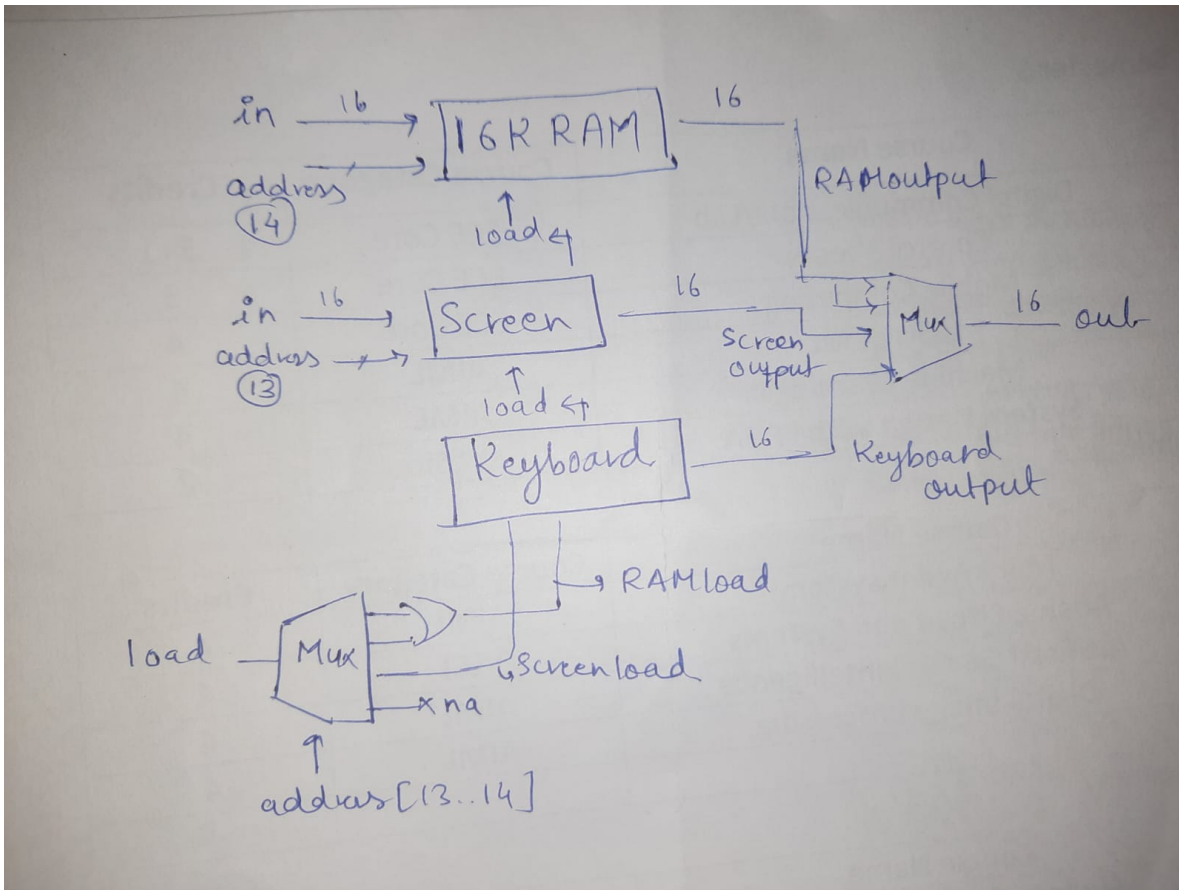 in 16 16K RAM 16
address
14
RAMoutput
load
in 16 Screen 16
address
13
Screen
output
Mux 16 out
load
Keyboard 16
Keyboard
output
RAMload
load Mux
Screenload
x na
addras[13..14]